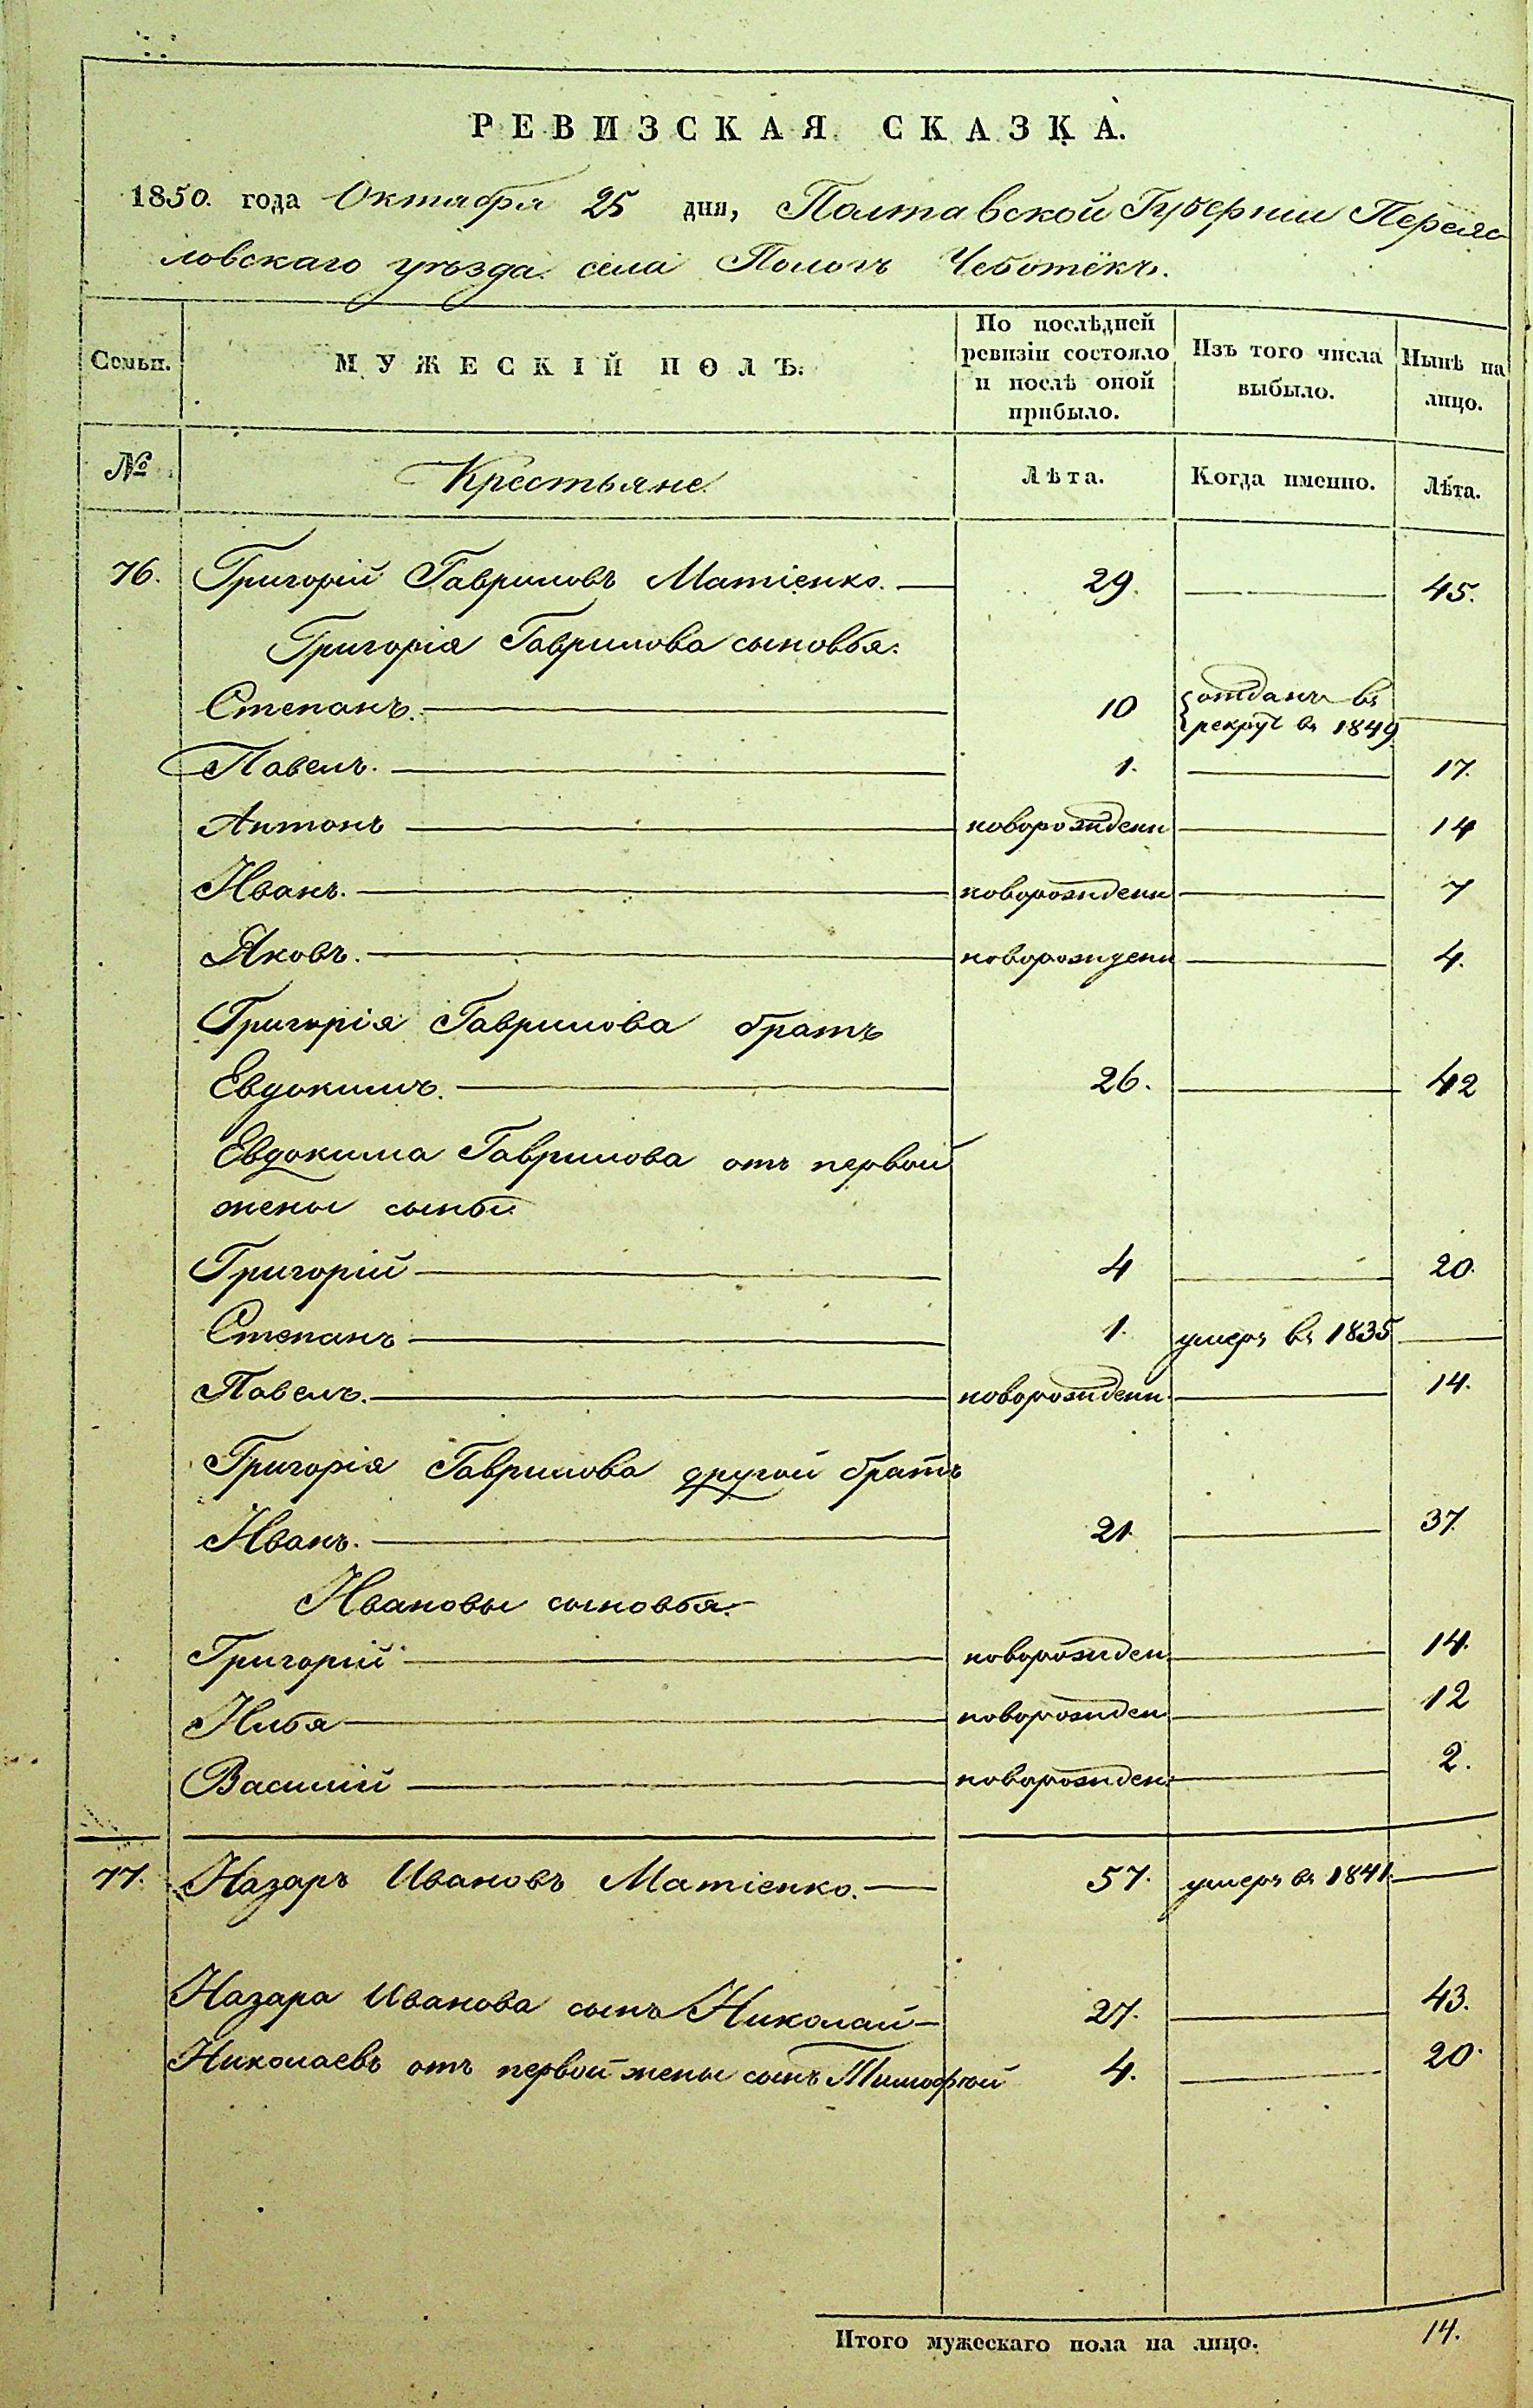 РЕВИЗСКАЯ СКАЗКА.
1850. года Октября 25 дня, Полтавской Губернии Переяс
ловскаго уѣзда села Пологъ Чеботёкъ.
Семьи. МУЖЕСКІЙ ПОЛЪ. По послѣдней ревизіи состояло и послѣ оной прибыло. Изъ того числа выбыло. Нынѣ на лицо.
№ Крестьяне Лѣта. Когда именно. Лѣта.
76. Григорій Гавриловъ Матіенко. 29. 45.
Григорія Гаврилова сыновья:
Степанъ. 10 отданъ въ рекрут въ 1849
Павелъ. 1. 17.
Антонъ новорожденн 14
Иванъ. новорожденн 7
Яковъ. новорожденн 4.
Григорія Гаврилова братъ
Евдокимъ. 26. 42
Евдокима Гаврилова отъ первой
жены сыны
Григорій 4 20.
Степанъ 1. умеръ въ 1835
Павелъ. новорожденн. 14.
Григорія Гаврилова другой братъ
Иванъ. 21. 37.
Ивановы сыновья.
Григорій новорожден. 14.
Илья новорожден. 12
Василій новорожден. 2.
77. Назаръ Ивановъ Матіенко. 57. умеръ въ 1841.
Назара Иванова сынъ Николай 27. 43.
Николаевъ отъ первой жены сынъ Тимофѣй 4. 20.
Итого мужескаго пола на лицо. 14.